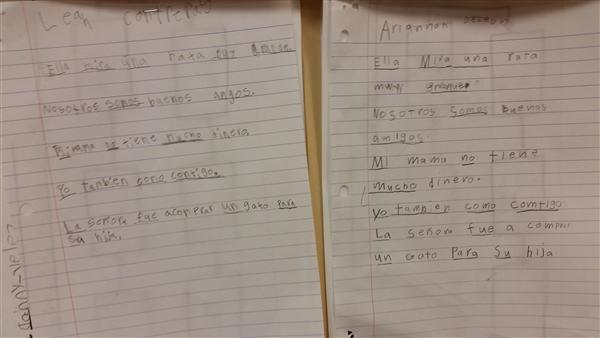 Leah Contreras
Ella mira una rata muy grande.
Nosotros somos buenos amgos.
Mi mama no tiene mucho dinero
Yo tanbien como contigo.
La señora fue acomprar un gato para
su hija.
Ariannah
Ella Mira una rata
muy grande.
Nosotros somos buenos
amigos.
Mi mama no tiene
mucho dinero.
Yo tambien como comtigo
La señora fue a compra
un Gato Para Su hija